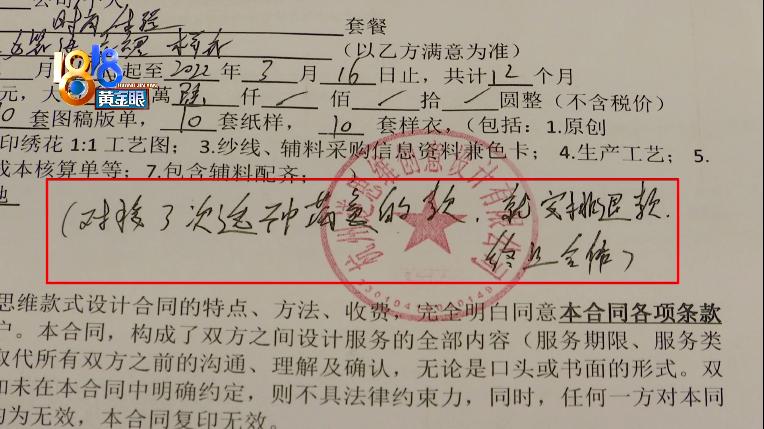 套餐
（以乙方满意为准）
月 起至 2022 年 3 月 16 日止，共计 12 个月
元，大 萬 仟 佰 拾 圆整（不含税价）
0 套图稿版单， 10 套纸样， 10 套样衣，（包括：1.原创
印绣花 1:1 工艺图； 3.纱线、辅料采购信息资料兼色卡； 4.生产工艺； 5.
成本核算单等；7.包含辅料配齐；
（对接3次选不中满意的款，就安排退款.
终止合作）
思维款式设计合同的特点、方法、收费，完全明白同意本合同各项条款
户。本合同，构成了双方之间设计服务的全部内容（服务期限、服务类
取代所有双方之前的沟通、理解及确认，无论是口头或书面的形式。双
如未在本合同中明确约定，则不具法律约束力，同时，任何一方对本同
均为无效，本合同复印无效。
1818
黄金眼